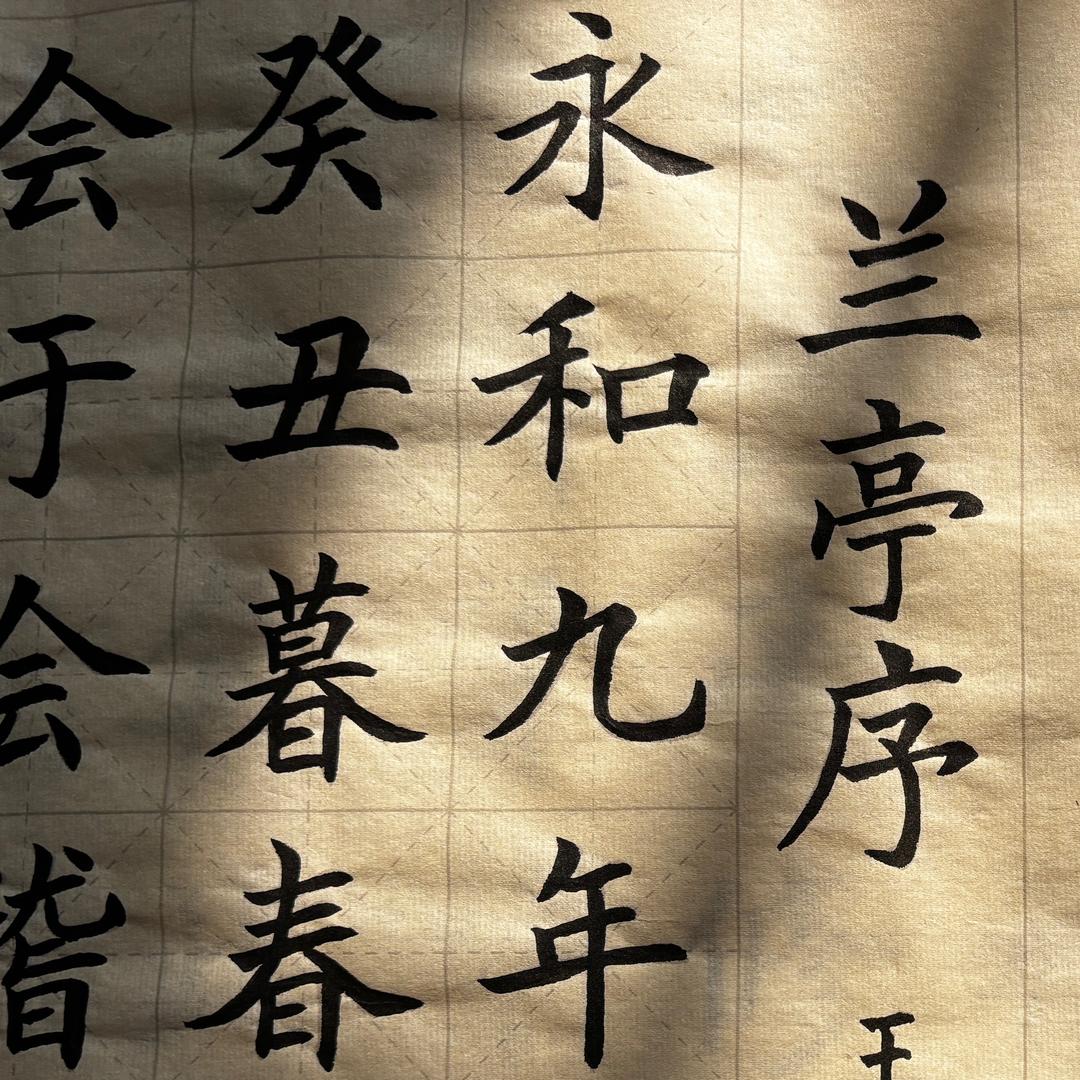 兰亭序
永和九年
癸丑暮春
会于会稽